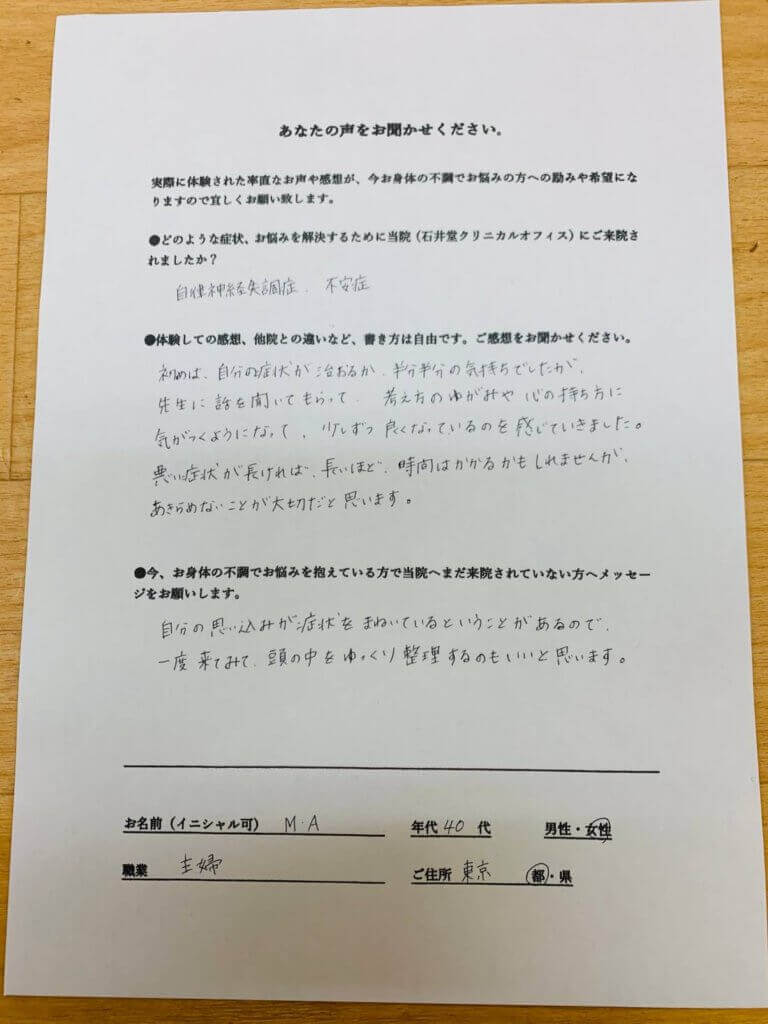 あなたの声をお聞かせください。
実際に体験された率直なお声や感想が、今お身体の不調でお悩みの方への励みや希望にな
りますので宜しくお願い致します。
●どのような症状、お悩みを解決するために当院（石井堂クリニカルオフィス）にご来院さ
れましたか？
自律神経失調症、不安症
●体験しての感想、他院との違いなど、書き方は自由です。ご感想をお聞かせください。
初めは、自分の症状が治おるか、半分半分の気持ちでしたが、
先生に話を聞いてもらって、考え方のゆがみや心の持ち方に
気がつくようになって、少しずつ良くなっているのを感じていきました。
悪い症状が長ければ、長いほど、時間はかかるかもしれませんが、
あきらめないことが大切だと思います。
●今、お身体の不調でお悩みを抱えている方で当院へまだ来院されていない方へメッセー
ジをお願いします。
自分の思い込みが症状をまねいているということがあるので、
一度来てみて、頭の中をゆっくり整理するのもいいと思います。
お名前（イニシャル可） M.A 年代 40 代 男性・女性
職業 主婦 ご住所 東京 都・県